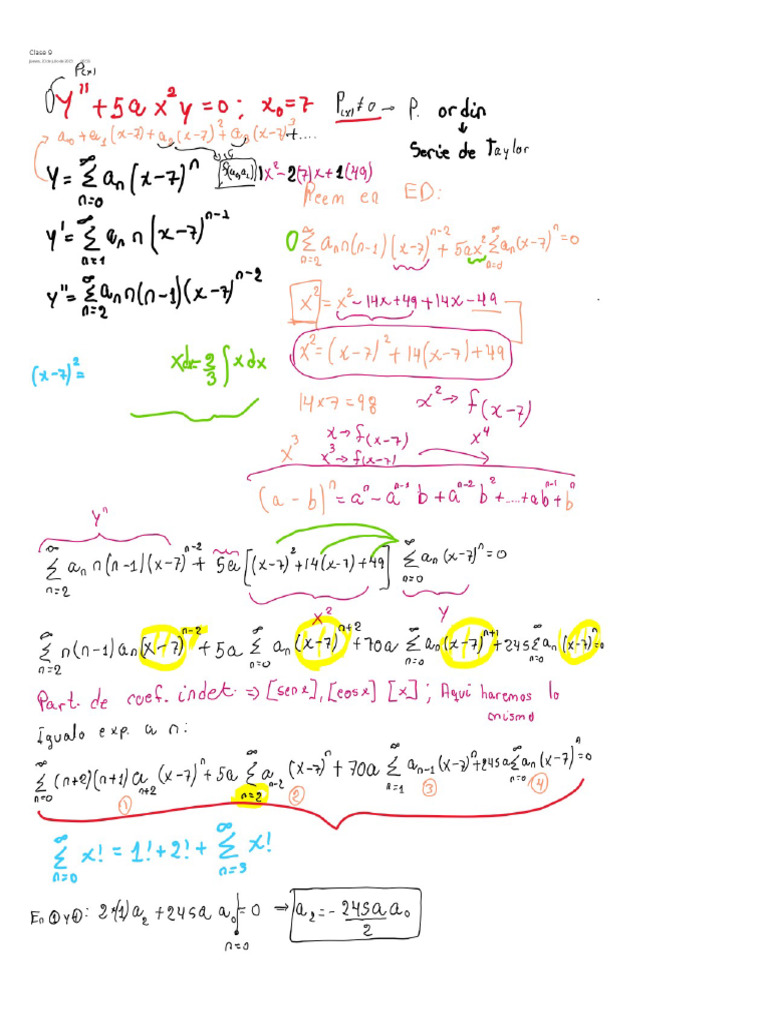 Clase 9
P(x)
y'' + 5a x² y = 0; x₀ = 7 P(x) ≠ 0 → P. ordin
↓
Serie de Taylor
a₀ + a₁(x-7) + a₂(x-7)² + a₃(x-7)³ + ....
y = ∑_{n=0}^{∞} aₙ(x-7)ⁿ 1x² - 2(7)x + 1(49)
Reem en ED:
y' = ∑_{n=1}^{∞} aₙ n(x-7)ⁿ⁻¹
0 ∑_{n=2}^{∞} aₙ n(n-1)(x-7)ⁿ⁻² + 5ax² ∑_{n=0}^{∞} aₙ(x-7)ⁿ = 0
y'' = ∑_{n=2}^{∞} aₙ n(n-1)(x-7)ⁿ⁻²
x² = x² - 14x + 49 + 14x - 49
x² = (x-7)² + 14(x-7) + 49
(x-7)² = xdx = 2/3 ∫ x dx
14×7 = 98 x² → f(x-7)
x³ x → f(x-7) x⁴
x³ → f(x-7)
(a-b)ⁿ = aⁿ - aⁿ⁻¹b + aⁿ⁻²b² + .... + abⁿ⁻¹ + bⁿ
y''
∑_{n=2}^{∞} aₙ n(n-1)(x-7)ⁿ⁻² + 5a[(x-7)² + 14(x-7) + 49] ∑_{n=0}^{∞} aₙ(x-7)ⁿ = 0
x² y
∑_{n=2}^{∞} n(n-1)aₙ(x-7)ⁿ⁻² + 5a ∑_{n=0}^{∞} aₙ(x-7)ⁿ⁺² + 70a ∑_{n=0}^{∞} aₙ(x-7)ⁿ⁺¹ + 245 ∑_{n=0}^{∞} aₙ(x-7)ⁿ = 0
Part. de coef. indet. ⇒ [senx], [cosx] [x]; Aqui haremos lo
mismo
Igualo exp. a n:
∑_{n=0}^{∞} (n+2)(n+1)a_{n+2}(x-7)ⁿ + 5a ∑_{n=2}^{∞} a_{n-2}(x-7)ⁿ + 70a ∑_{n=1}^{∞} a_{n-1}(x-7)ⁿ + 245a ∑_{n=0}^{∞} aₙ(x-7)ⁿ = 0
① ② ③ ④
∑_{n=0}^{∞} x! = 1! + 2! + ∑_{n=3}^{∞} x!
En ① y ④: 2·(1)a₂ + 245a a₀ = 0 ⇒ a₂ = -245a a₀/2
n=0